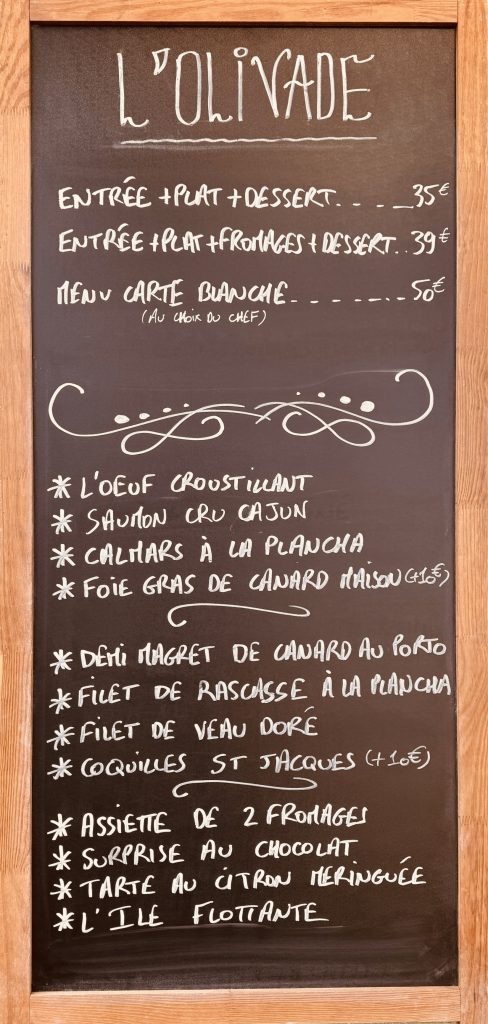 L'OLIVADE
ENTRÉE + PLAT + DESSERT.... 35€
ENTRÉE + PLAT + FROMAGES + DESSERT.. 39€
MENU CARTE BLANCHE........ 50€
(AU CHOIX DU CHEF)
* L'OEUF CROUSTILLANT
* SAUMON CRU CAJUN
* CALMARS À LA PLANCHA
* FOIE GRAS DE CANARD MAISON (+10€)
* DEMI MAGRET DE CANARD AU PORTO
* FILET DE RASCASSE À LA PLANCHA
* FILET DE VEAU DORÉ
* COQUILLES ST JACQUES (+10€)
* ASSIETTE DE 2 FROMAGES
* SURPRISE AU CHOCOLAT
* TARTE AU CITRON MERINGUÉE
* L'ILE FLOTTANTE